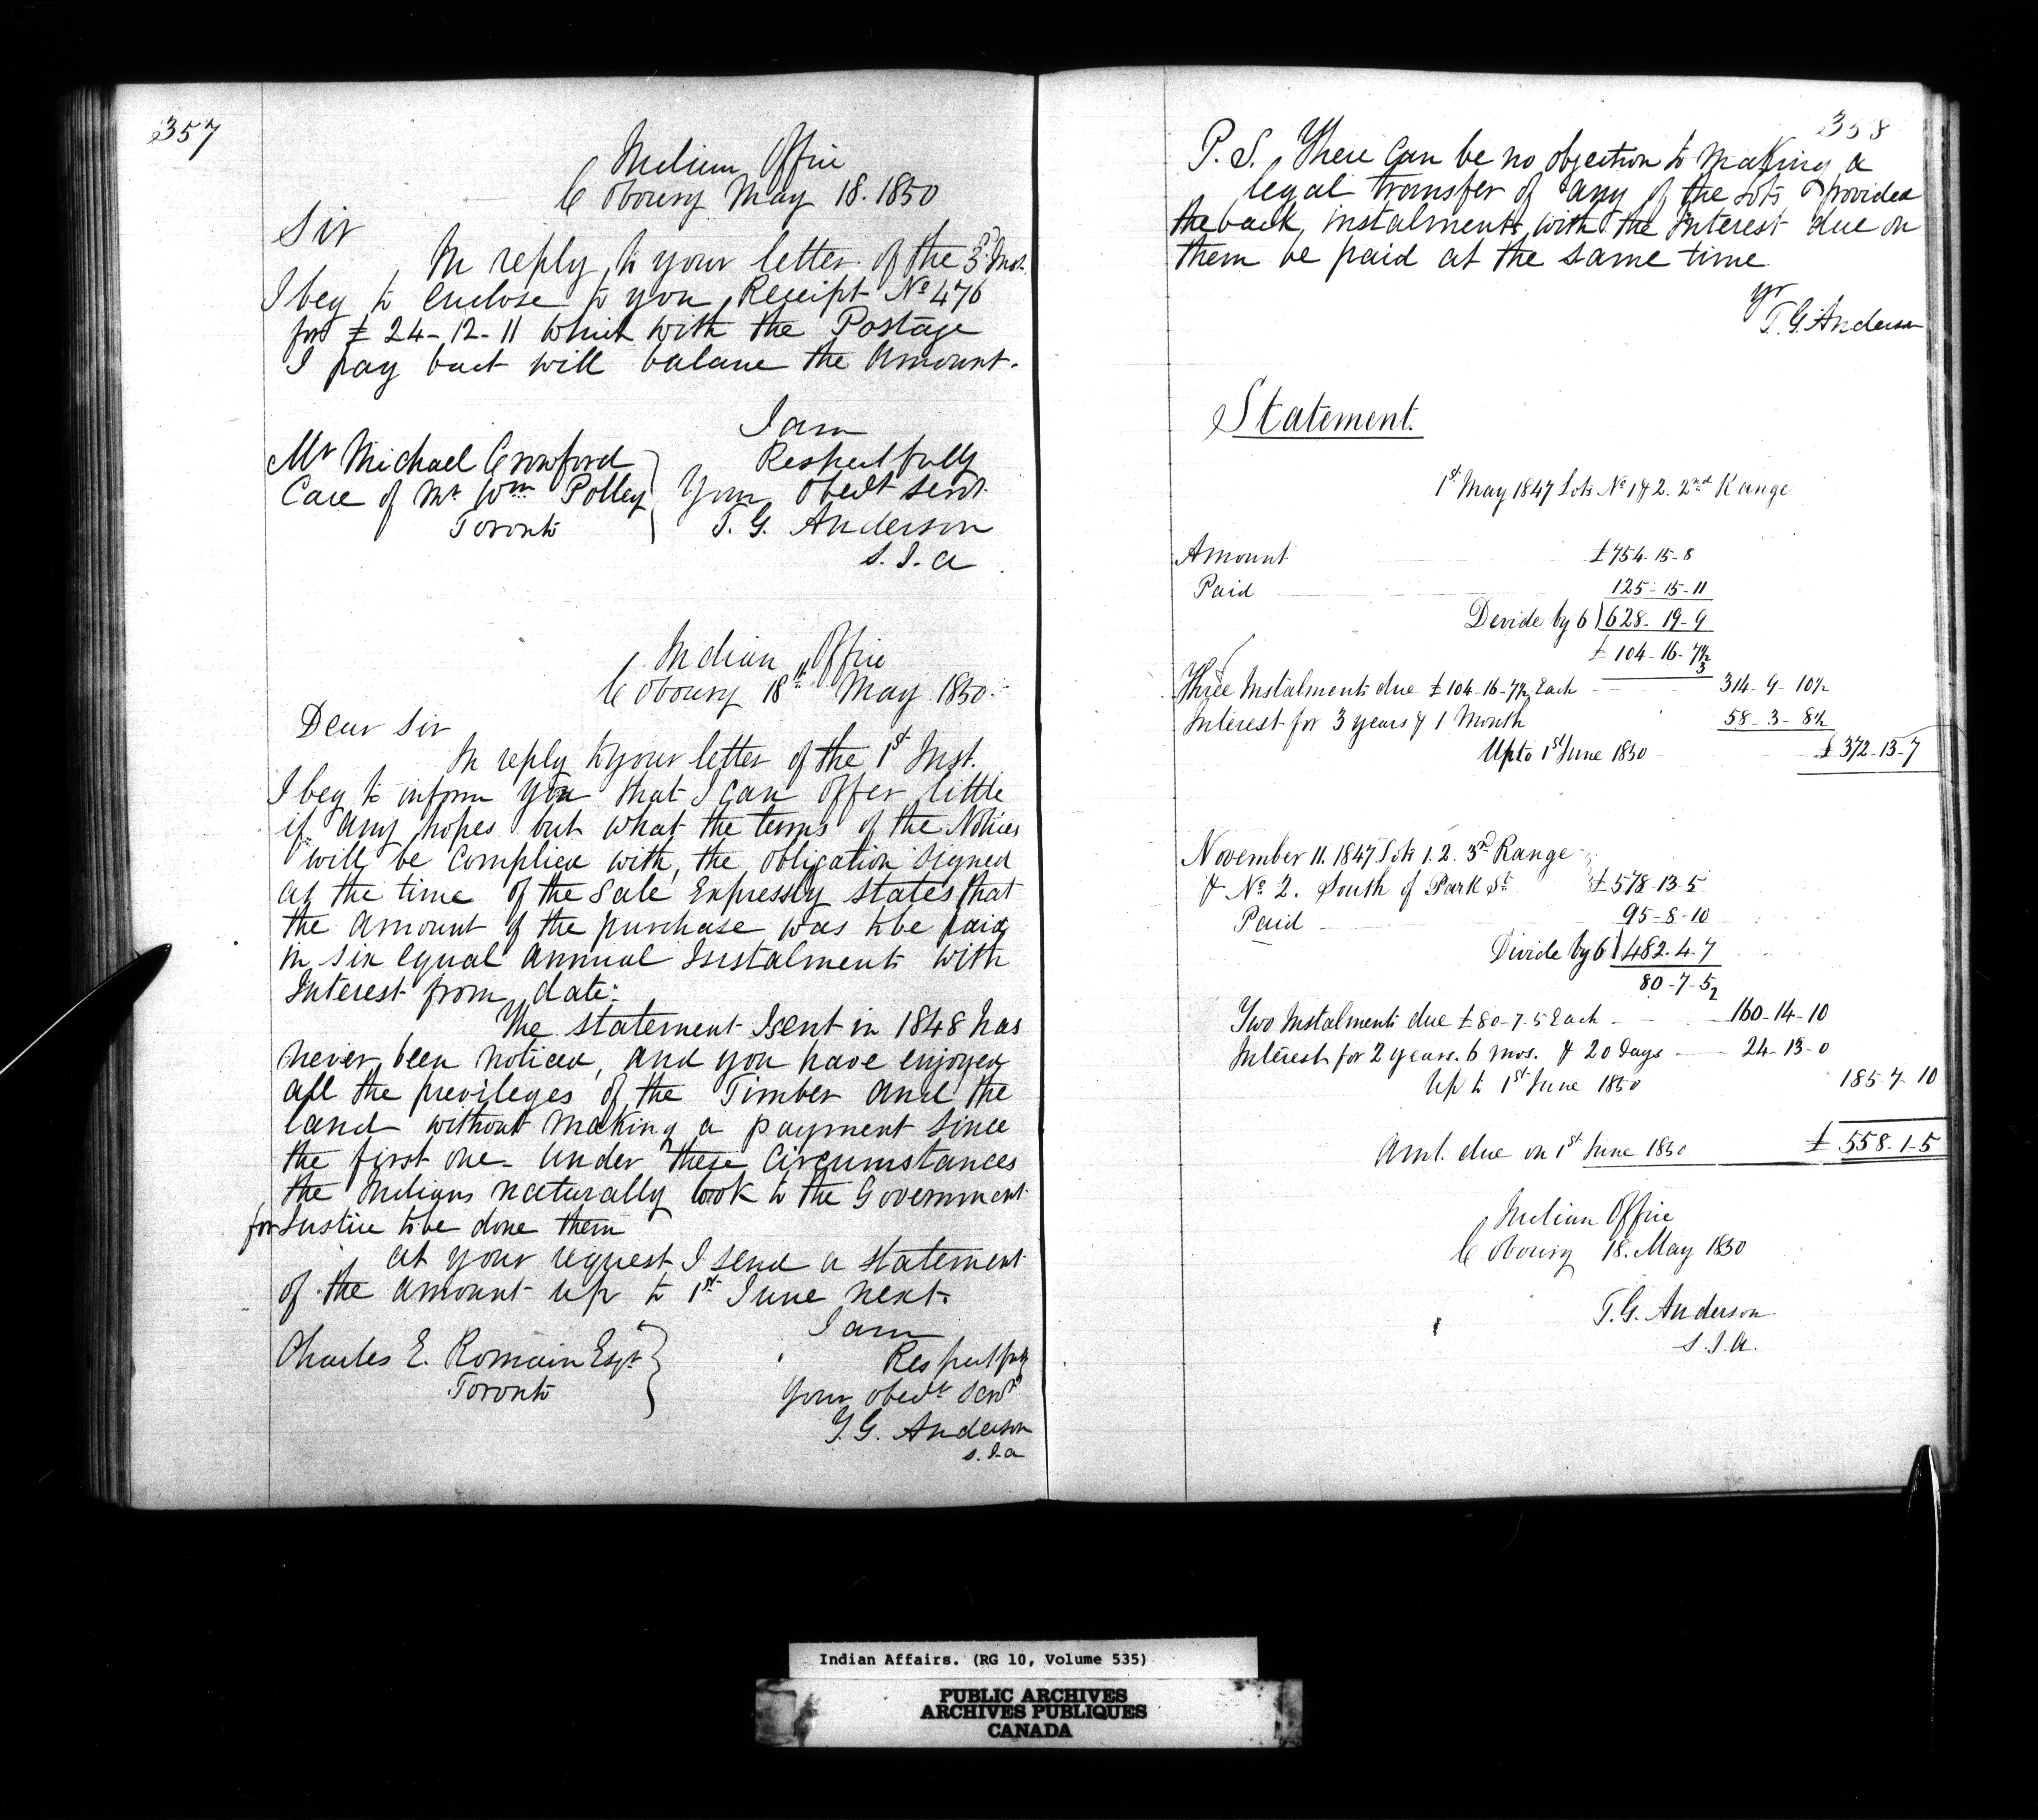 357
Indian Office
Cobourg May 18. 1850
Sir
In reply to your letter of the 3d Inst.
I beg to enclose to you Receipt No 476
for £ 24-12-11 which with the Postage
I pay back will balance the Amount.
I am
Respectfully
Your Obedt Servt
T. G. Anderson
S. I. A
Mr Michael Crowford
Care of Mr Wm Polley
Toronto
Indian Office
Cobourg 18th May 1850.
Dear Sir
In reply to your letter of the 1st Inst.
I beg to inform you that I can offer little
if any hopes but what the terms of the Notices
will be complied with, the obligation signed
at the time of the Sale Expressly states that
the amount of the purchase was to be paid
in six equal annual Instalments with
Interest from date:
The statement I sent in 1848 has
never been noticed, and you have enjoyed
all the previleges of the Timber and the
land without making a payment since
the first one. Under these Circumstances
the Indians naturally look to the Government
for Justice to be done them
At your request I send a statement
of the amount up to 1st June next.
I am
Respectfully
Your obedt Servt
T. G. Anderson
S. I. A
Charles E. Romain Esqr
Toronto
358
P. S. There can be no objection to making a
legal transfer of any of the Lots provided
the back instalments with the Interest due on
them be paid at the same time
yr
T. G. Anderson
Statement.
1st May 1847 Lots No 1 & 2. 2nd Range
Amount £754-15-8
Paid 125-15-11
Devide by 6) 628-19-9
£ 104-16-7½
3
Three Instalments due £104-16-7½ Each 314-9-10½
Interest for 3 years & 1 Month 58-3-8½
Up to 1st June 1850 £372-13-7
November 11. 1847 Lots 1. 2. 3rd Range
& No 2. South of Park St £578-13-5
Paid 95-8-10
Divide by 6) 482.4.7
80-7-5
2
Two Instalments due £80-7-5 Each 160-14-10
Interest for 2 years. 6 mos. & 20 days 24-13-0
Up to 1st June 1850 185 7 10
Amt. due on 1st June 1850 £ 558-1-5
Indian Office
Cobourg 18. May 1850
T. G. Anderson
S. I. A.
Indian Affairs. (RG 10, Volume 535)
PUBLIC ARCHIVES
ARCHIVES PUBLIQUES
CANADA